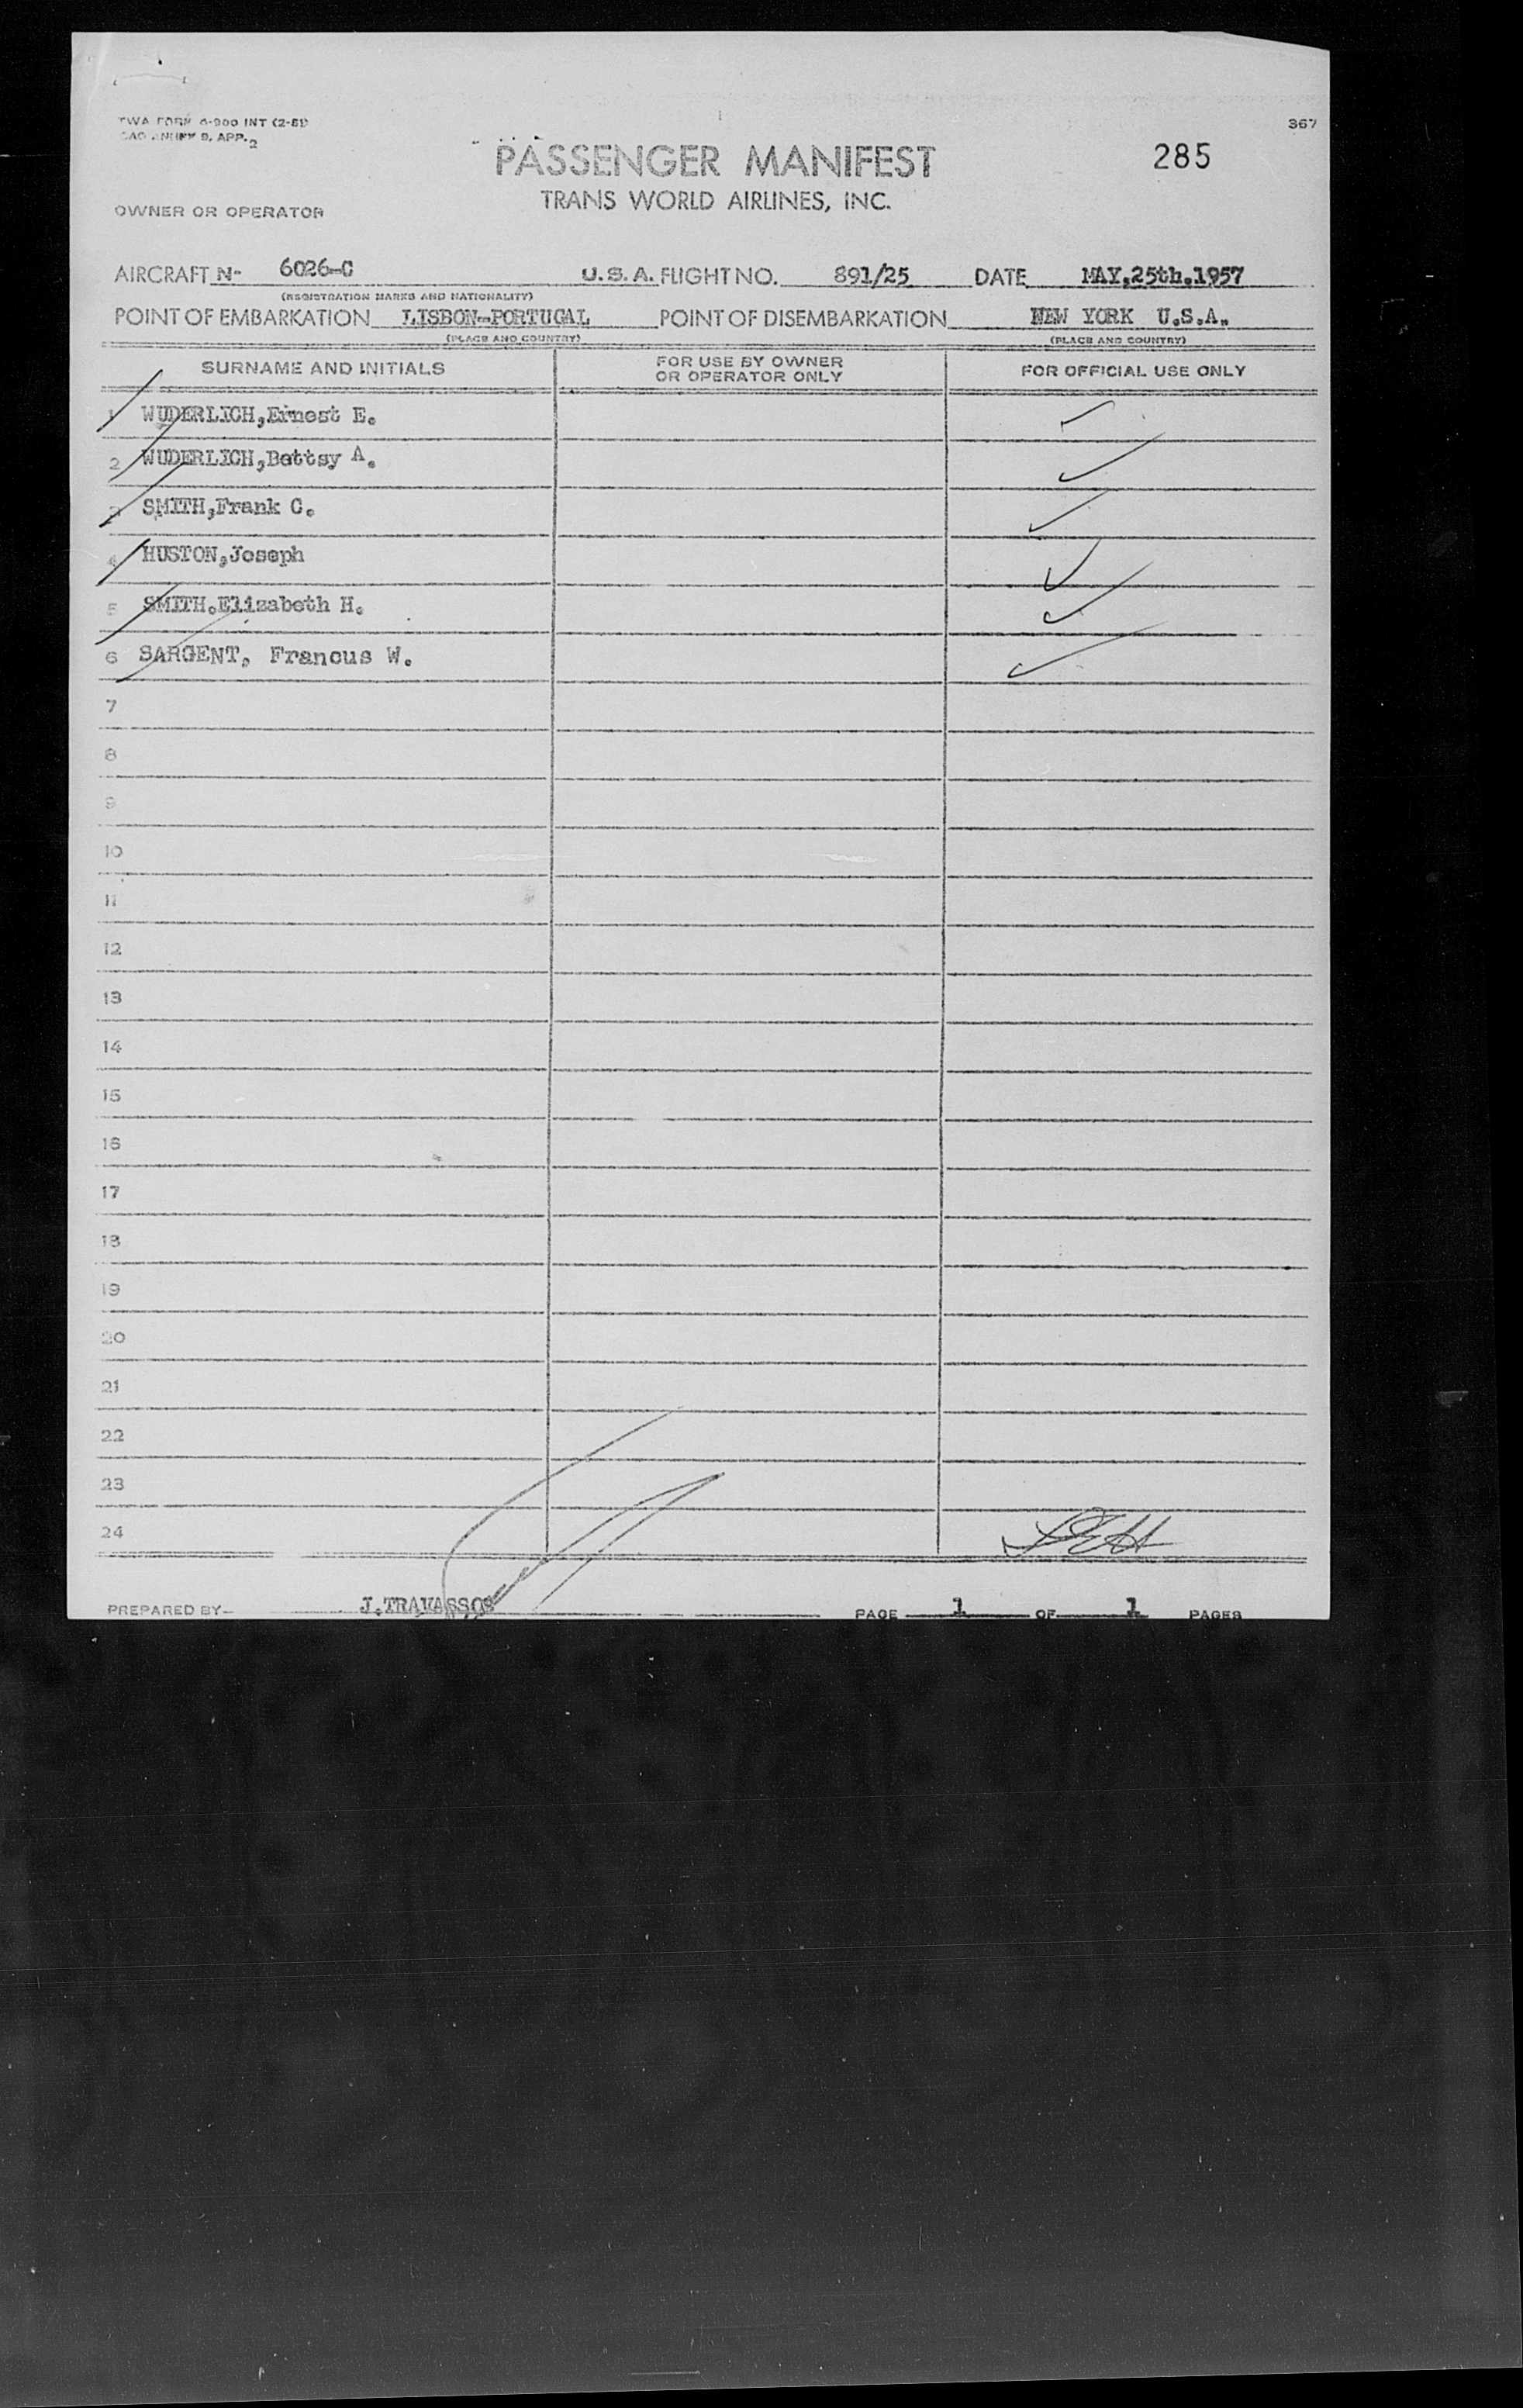 TWA FORM 0-900 INT (2-51)
APP. 2
367
PASSENGER MANIFEST
285
TRANS WORLD AIRLINES, INC.
OWNER OR OPERATOR
AIRCRAFT N- 6026-C U.S.A. FLIGHT NO. 891/25 DATE MAY,25th.1957
(REGISTRATION MARKS AND NATIONALITY)
POINT OF EMBARKATION LISBON-PORTUGAL POINT OF DISEMBARKATION NEW YORK U.S.A.
(PLACE AND COUNTRY) (PLACE AND COUNTRY)
SURNAME AND INITIALS FOR USE BY OWNER OR OPERATOR ONLY FOR OFFICIAL USE ONLY
1 WUDERLICH,Ernest E.
2 WUDERLICH,Bettsy A.
3 SMITH,Frank C.
4 HUSTON,Joseph
5 SMITH.Elizabeth H.
6 SARGENT, Francus W.
7
8
9
10
11
12
13
14
15
16
17
18
19
20
21
22
23
24
PREPARED BY J.TRAVASSOS PAGE 1 OF 1 PAGES